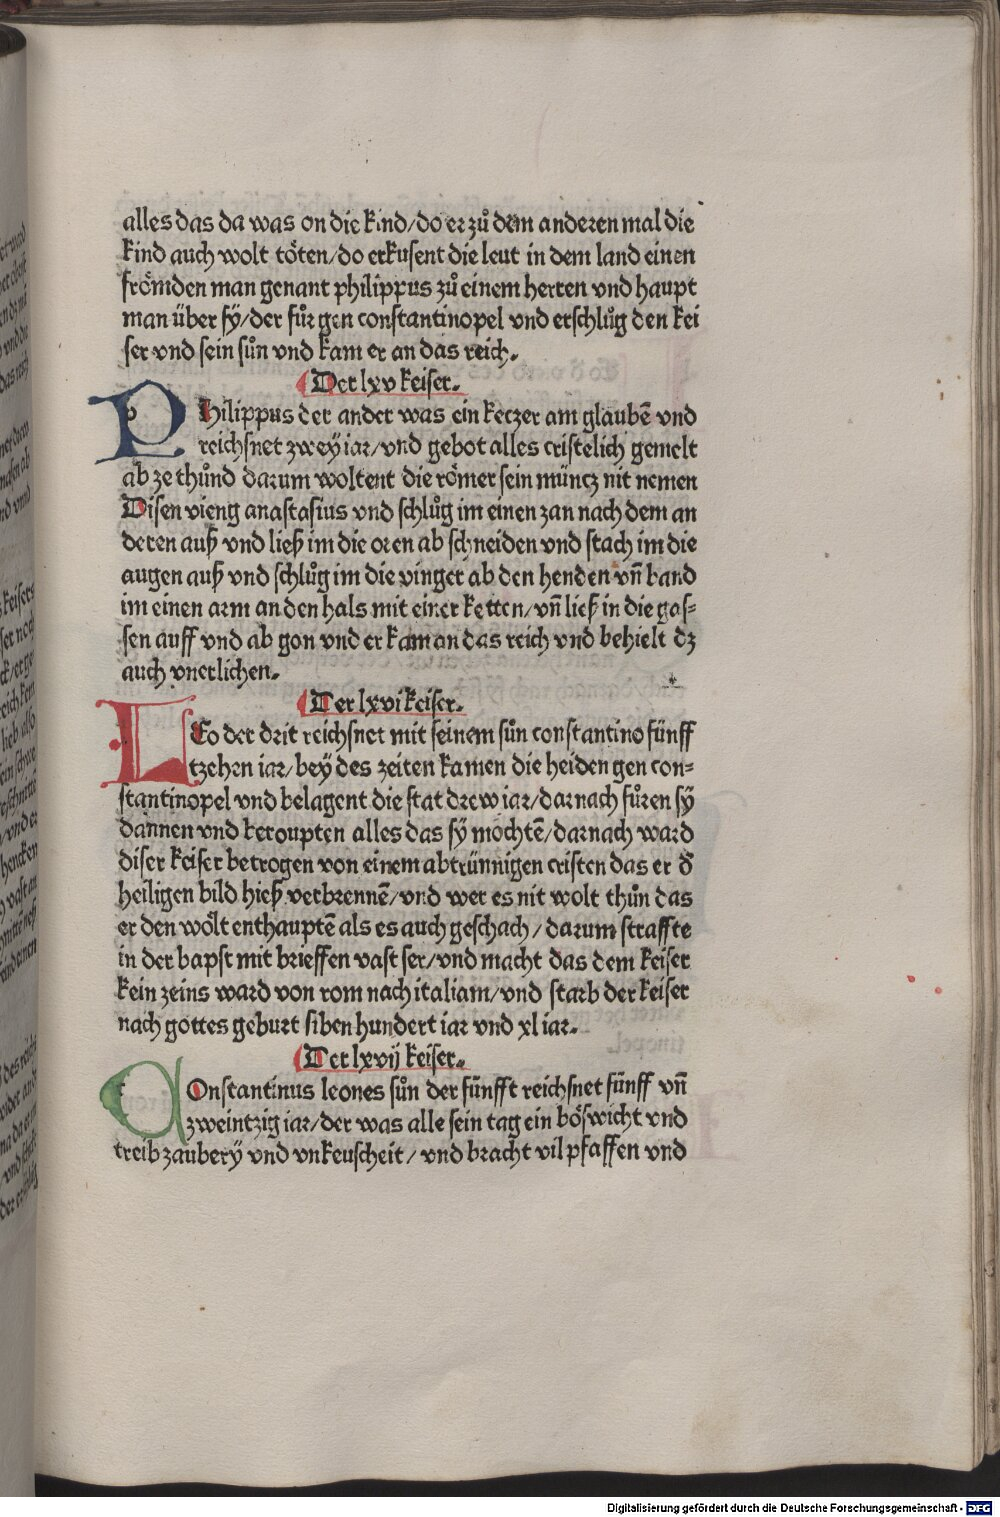 alles das da was on die kind/do er zuͦ dem anderen mal die
kind auch wolt toͤten/do erkusent die leut in dem land einen
froͤmden man genant philippus zuͦ einem herren vnd haupt
man über sy/der fuͦr gen constantinopel vnd erschluͦg den kei
ser vnd sein suͦn vnd kam er an das reich.
Der lxv keiser.
Philippus der ander was ein keczer am glaubē vnd
reichsnet zwey iar/vnd gebot alles cristelich gemelt
ab ze thuͦnd darum woltent die roͤmer sein müncz nit nemen
Disen vieng anastasius vnd schluͦg im einen zan nach dem an
deren auß vnd ließ im die oren ab schneiden vnd stach im die
augen auß vnd schluͦg im die vinger ab den henden vn̄ band
im einen arm an den hals mit einer ketten/vn̄ ließ in die gas-
sen auff vnd ab gon vnd er kam an das reich vnd behielt dz
auch vnerlichen.
Der lxvi keiser.
LEo der drit reichsnet mit seinem suͦn constantino fünff
tzehen iar/bey des zeiten kamen die heiden gen con-
stantinopel vnd belagent die stat drew iar/darnach fuͦren sy
dannen vnd beroupten alles das sy mochtē/darnach ward
diser keiser betrogen von einem abtrünnigen cristen das er d̄
heiligen bild hieß verbrennē/vnd wer es nit wolt thuͦn das
er den woͤlt enthauptē als es auch geschach/darum straffte
in der bapst mit brieffen vast ser/vnd macht das dem keiser
kein zeins ward von rom nach italiam/vnd starb der keiser
nach gottes geburt siben hundert iar vnd xl iar.
Der lxvij keiser.
COnstantinus leones suͦn der fünfft reichsnet fünff vn̄
zweintzig iar/der was alle sein tag ein boͤswicht vnd
treib zaubery vnd vnkeuscheit/vnd bracht vil pfaffen vnd
Digitalisierung gefördert durch die Deutsche Forschungsgemeinschaft - DFG